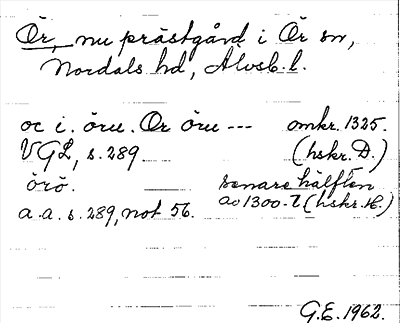 Ör, nu prästgård i Ör sn,
Nordals hd, Älvsb. l.
oc i. öru. Or öru --- omkr. 1325.
VGL, s. 289 (hskr. D.)
örö. senare hälften
a.a. s. 289, not 56. av 1300-t. (hskr. H.)
G.E. 1962.